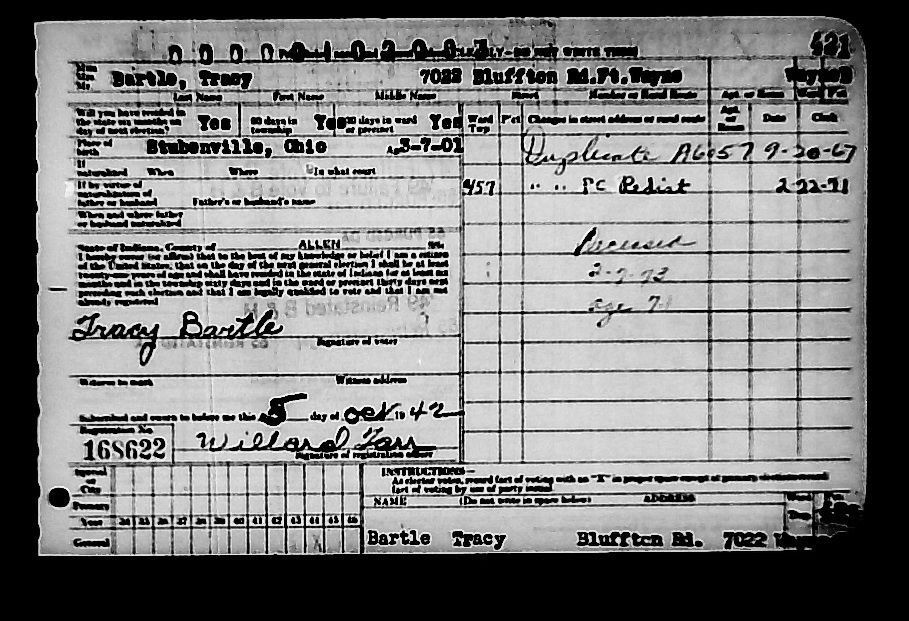 0 0 0 0 0 1 0 2 0 0 3 LY—DO NOT WRITE THESE 421
Miss Mrs Mr. Bartle, Tracy 7022 Bluffton Rd.Ft.Wayne Wayne
Last Name First Name Middle Name Street Number or Rural Route Apt. or Room Ward Pct
Will you have resided in the state six months on day of next election? Yes 60 days in township Yes 30 days in ward or precinct Yes Ward Twp Pct Changes in street address or rural route Apt. or Room Date Clerk
Place of birth Stubenville, Ohio 3-7-01 Duplicate A6057 9-20-67
If naturalized When Where In what court
If by virtue of naturalization of father or husband Father's or husband's name 457 " " PC Redist 2-22-71
When and where father or husband naturalized
State of Indiana, County of ALLEN SS. Deceased
I hereby swear (or affirm) that to the best of my knowledge or belief I am a citizen
of the United States, that on the day of the next general election I shall be at least
twenty-one years of age and shall have resided in the state of Indiana for at least six 2-7-73
months and in the township sixty days and in the ward or precinct thirty days next
preceding such election and that I am legally qualified to vote and that I am not
already registered age 71
49 Reinstated B & H
Tracy Bartle
Signature of voter
Witness to mark Witness address
Subscribed and sworn to before me this 5 day of Oct 1942
Registration No
168622 Willard Farr
Signature of registration officer
Special or City INSTRUCTIONS—
As elector votes, record fact of voting with an "X" in proper space except at primary
Primary fact of voting by use of party name.
NAME (Do not write in space below) ADDRESS Ward Pct
Year 34 35 36 37 38 39 40 41 42 43 44 45 46 Twp
General X Bartle Tracy Bluffton Rd. 7022 Wayne